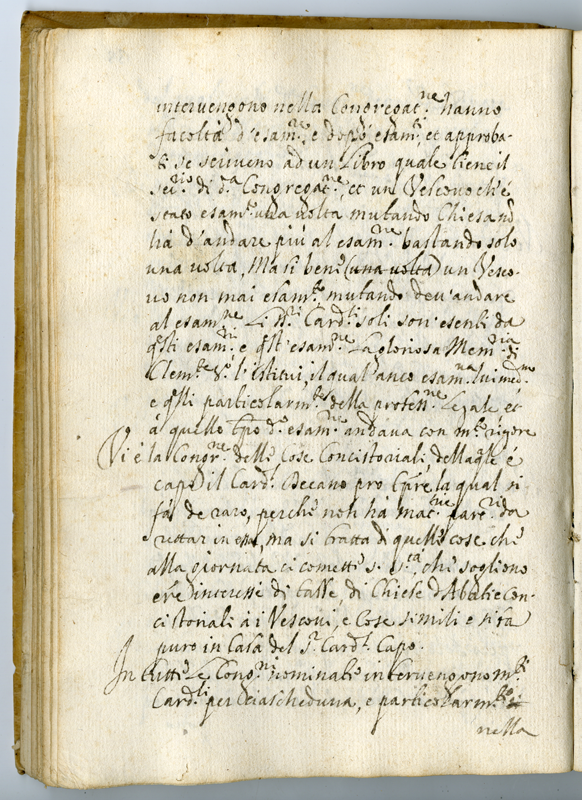 intervengono nella Congregat.ne hanno
facoltà d'esam.re, e dopò esam.ti, et approba-
ti se scriveno ad un Libro quale tiene il
sec.rio di d.a Congregat.ne, et un Vescovo ch'è
stato esam.to una volta mutando Chiesa nō
hà d'andare più al esam.ne bastando solo
una volta, Ma si bene (una volta) un Vesco-
vo non mai esam.to mutando dev'andare
al esam.ne. Li ss.ri Card.li soli son'esenti da
q̄sti esam.ni e q̄st'esam.ne La gloriosa Mem.ria di
Clem.te 8.o l'istituì, il qual'anco esam.va lui med.mo
e q̄lli particolarm.te della profess.ne Legale, et
à quello tp̄o d.o esam.ne andava con m.to rigore
Vi è la Congr.ne delle cose Concistoriali della q̄le è
capo il Card.l Decano pro tp̄re, la qual si
fà de raro, perche non hà mat.rie par.ri da
trattar in essa, ma si tratta di quelle cose che
alla giornata ci comette s. s.tà, che sogliono
esr̄e interesse di tasse, di Chiese d'Abatie con-
cistoriali à i Vescovi, e cose simili e si fa
puro in Casa del s.r Card.l Capo.
In tutte Le Cong.ni nominate intervengono m.ti
Card.li per ciascheduna, e particolarm.te
nella